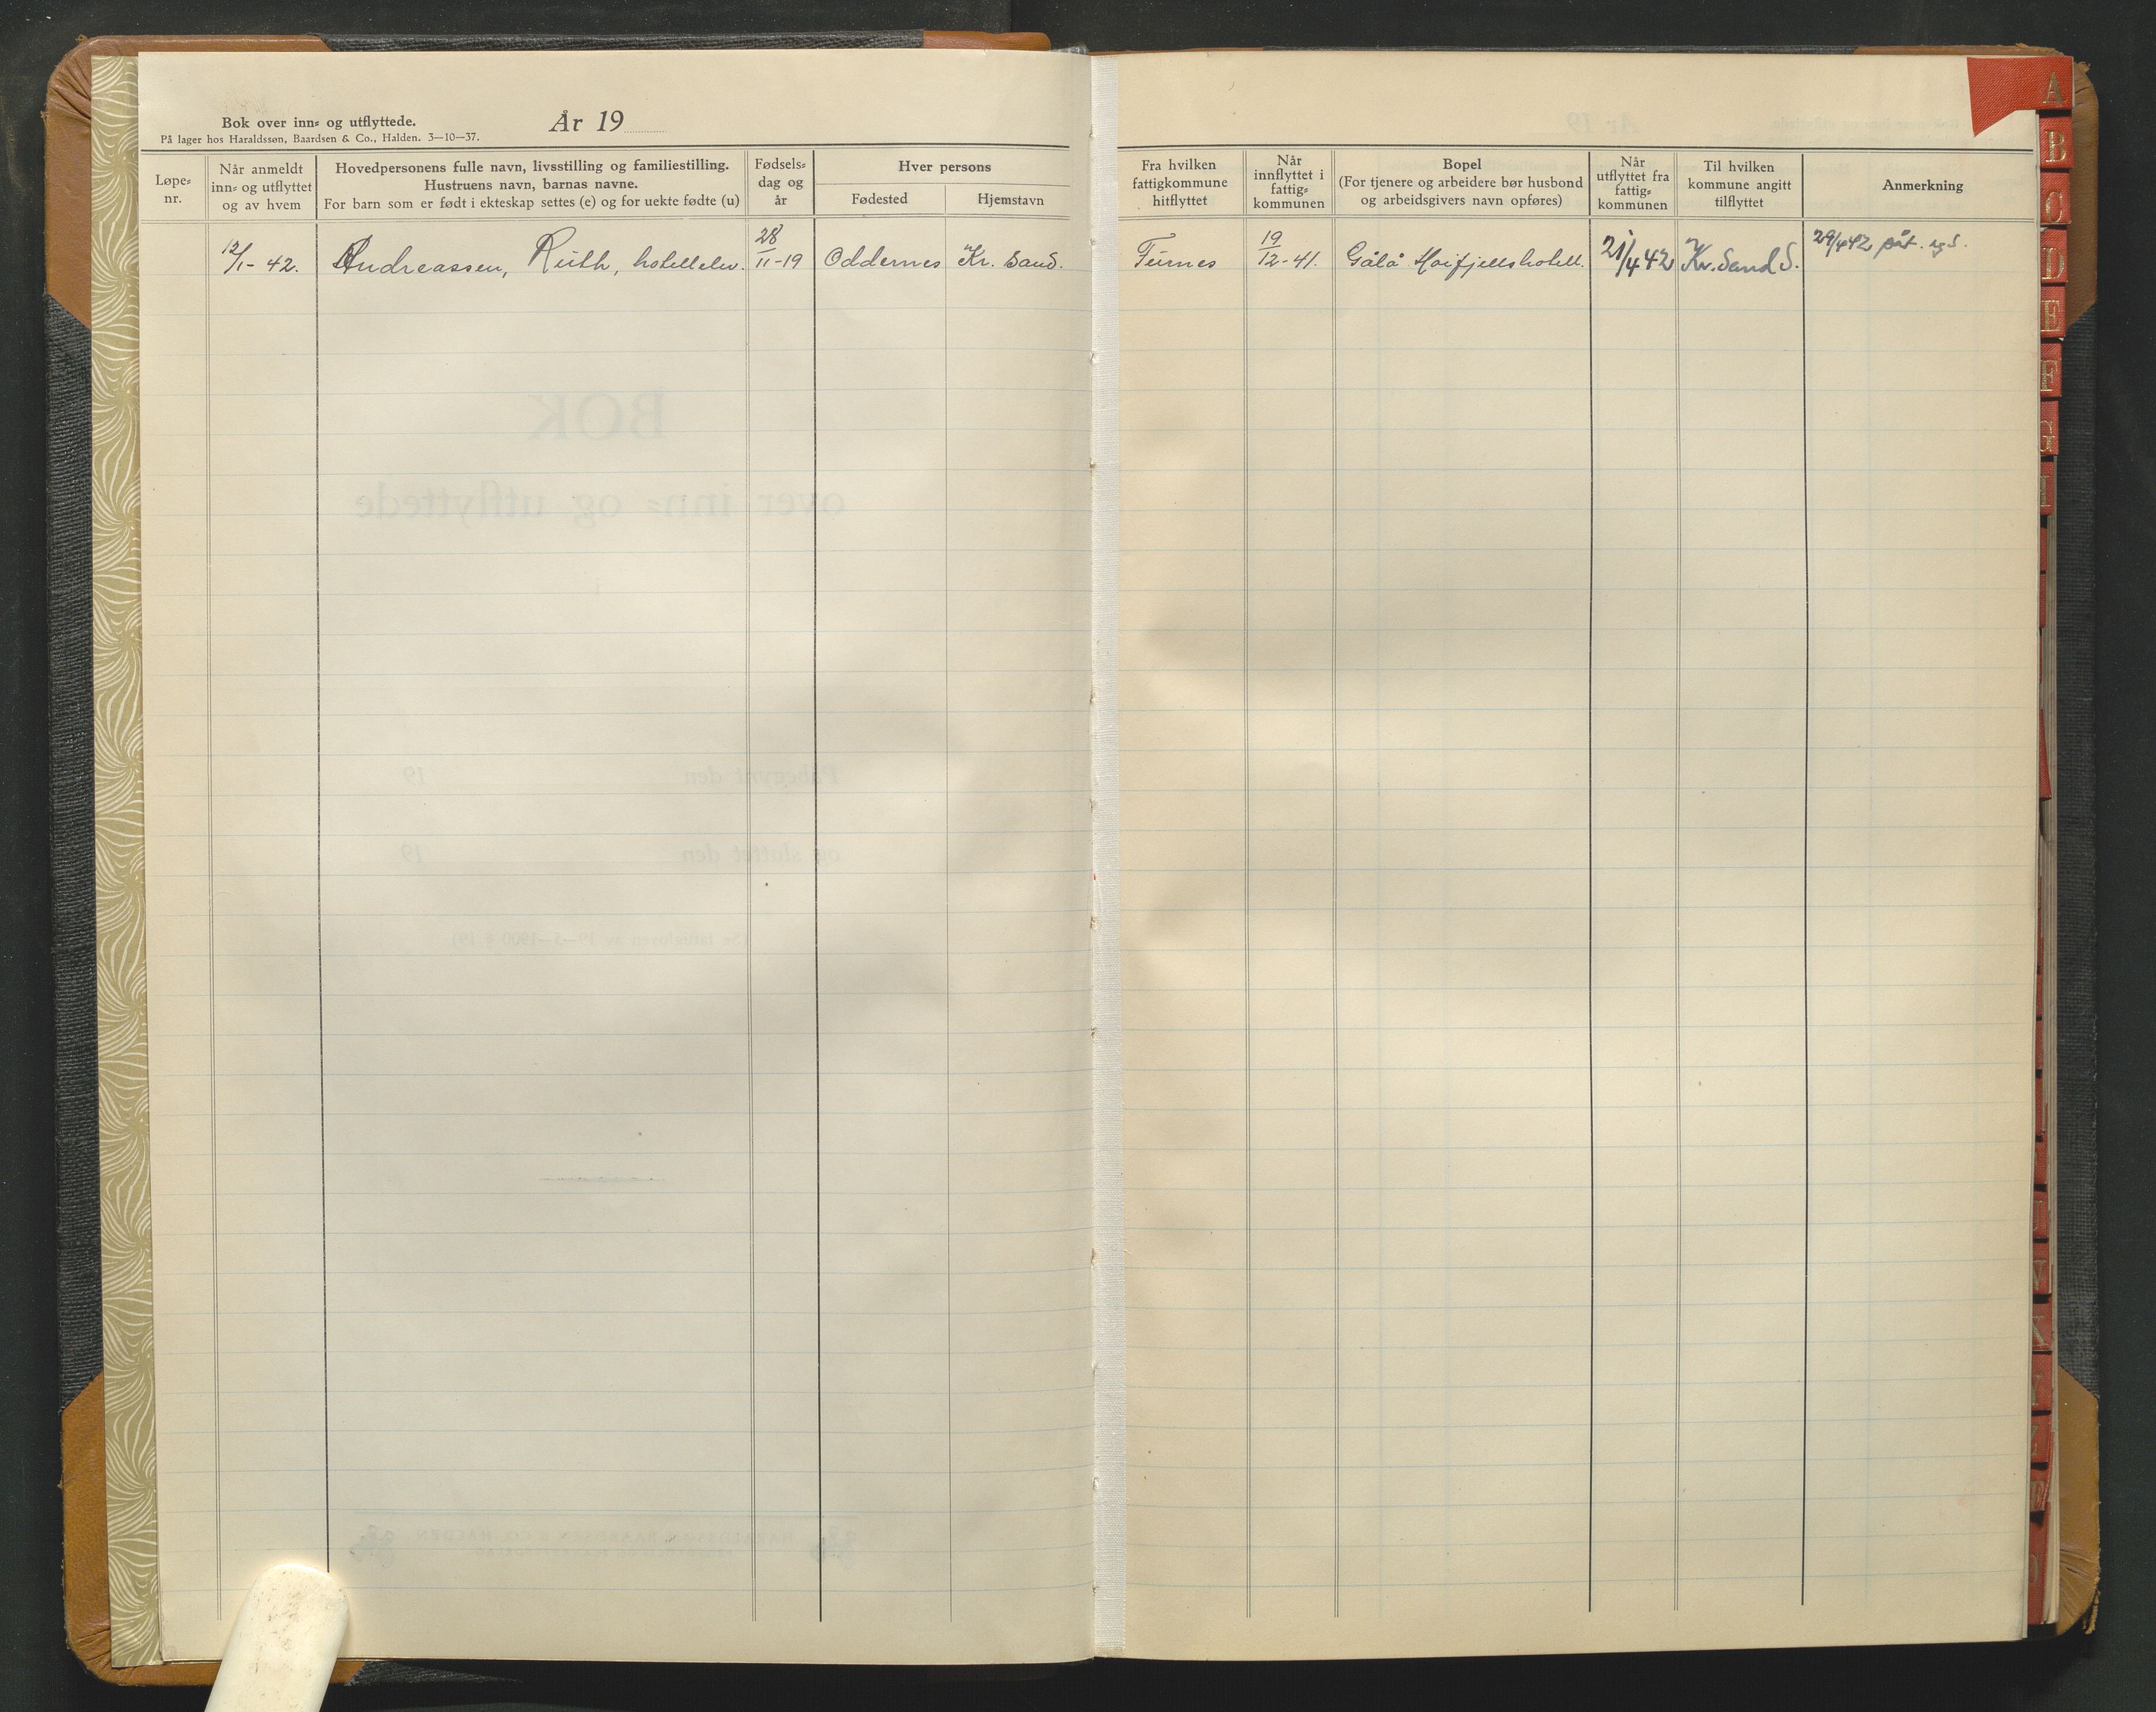 Bok over inn= og utflyttede.
På lager hos Haraldssøn, Baardsen & Co., Halden. 3—10—37.
År 19
Løpe=
nr.
Når anmeldt
inn= og utflyttet
og av hvem
Hovedpersonens fulle navn, livsstilling og familiestilling.
Hustruens navn, barnas navne.
For barn som er født i ekteskap settes (e) og for uekte fødte (u)
Fødsels=
dag og
år
Hver persons
Fødested
Hjemstavn
Fra hvilken
fattigkommune
hitflyttet
Når
innflyttet i
fattig=
kommunen
Bopel
(For tjenere og arbeidere bør husbond
og arbeidsgivers navn opføres)
Når
utflyttet fra
fattig=
kommunen
Til hvilken
kommune angitt
tilflyttet
Anmerkning
12/1- 42.
Andreassen, Ruth, hotellelev.
28/11-19
Oddernes
Kr. Sand.
Furnes
19/12-41.
Gålå Høifjellshotell.
21/4 42
Kr. Sand S.
29/4 42 påt.
A
B
C
D
E
F
G
BOK
over inn= og utflyttede
Påbegynt den 19
og sluttet den 19
(Se fattigloven av 19—5—1900 § 19)